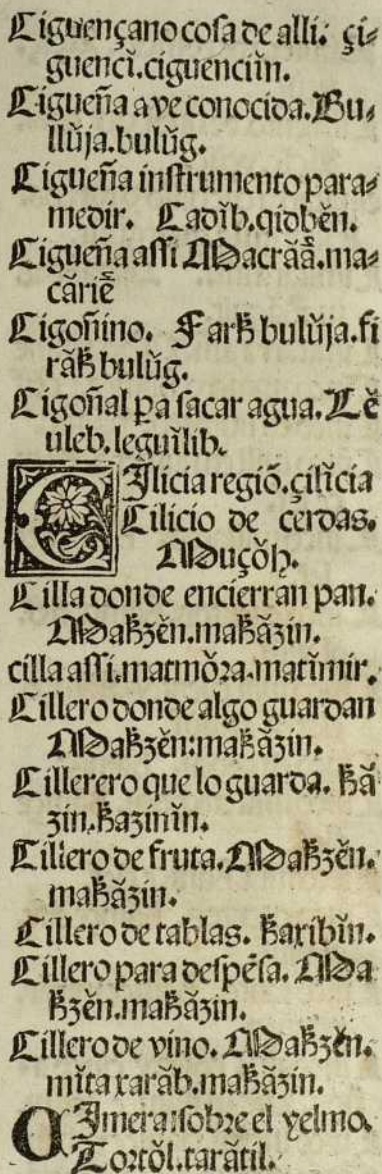 Ciguençano cosa de alli. çi-
guencĭ.ciguenciĭn.
Cigueña ave conocida. Bu-
llŭja.bulŭg.
Cigueña instrumento para-
medir. Cadĭb.qidbĕn.
Cigueña assi Macrăă.ma-
căriĕ
Cigoñino. Fark bulŭja.fi
răk bulŭg.
Cigoñal pa sacar agua. Lĕ
uleb.leguĭlib.
CIlicia regiõ.çilĭcia
Cilicio de cerdas.
Muçŏh.
Cilla donde encierran pan.
Makzĕn.makăzin.
cilla assi.matmŏra.matĭmir.
Cillero donde algo guardan
Makzĕn:makăzin.
Cillerero que lo guarda. kă
zin.kazinĭn.
Cillero de fruta. Makzĕn.
makăzin.
Cillero de tablas. karibĭn.
Cillero para despẽsa. Ma
kzĕn.makăzin.
Cillero de vino. Makzĕn.
mĭta xarăb.makăzin.
CImera:sobre el yelmo.
Tortŏl.tarătil.